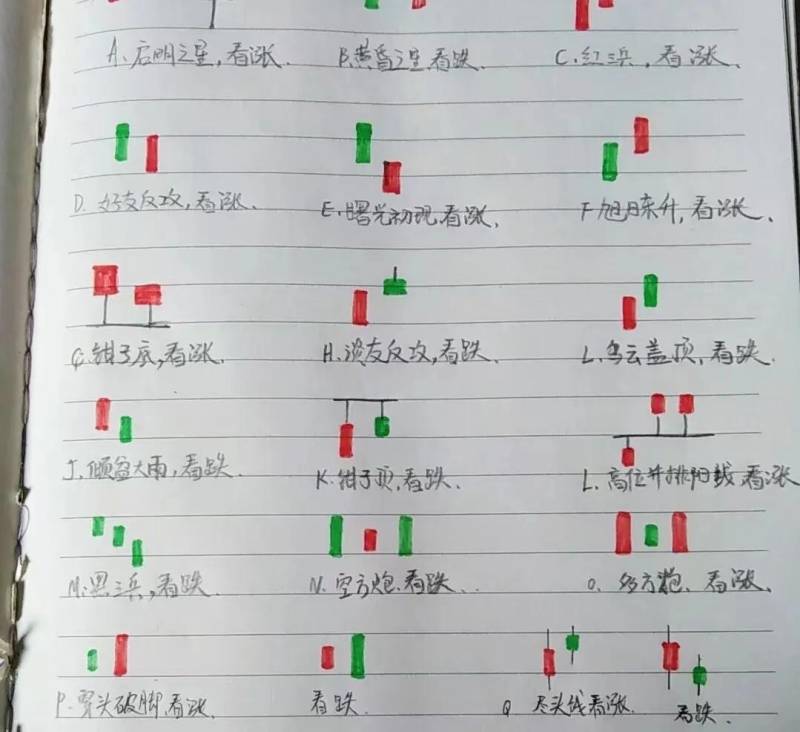 A、启明之星，看涨．
B、黄昏之星，看跌．
C、红三兵，看涨、
D、好友反攻，看涨．
E、曙光初现，看涨、
F 旭日东升，看涨、
G、钳子底，看涨．
H、淡友反攻，看跌．
L、乌云盖顶，看跌．
J、倾盆大雨，看跌．
K、钳子顶，看跌．
L、高位并排阳线，看涨
M、黑三兵，看跌
N、空方炮、看跌．．
O、多方炮、看涨、
P、穿头破脚，看涨、
看跌．
Q 尽头线看涨．
看跌．